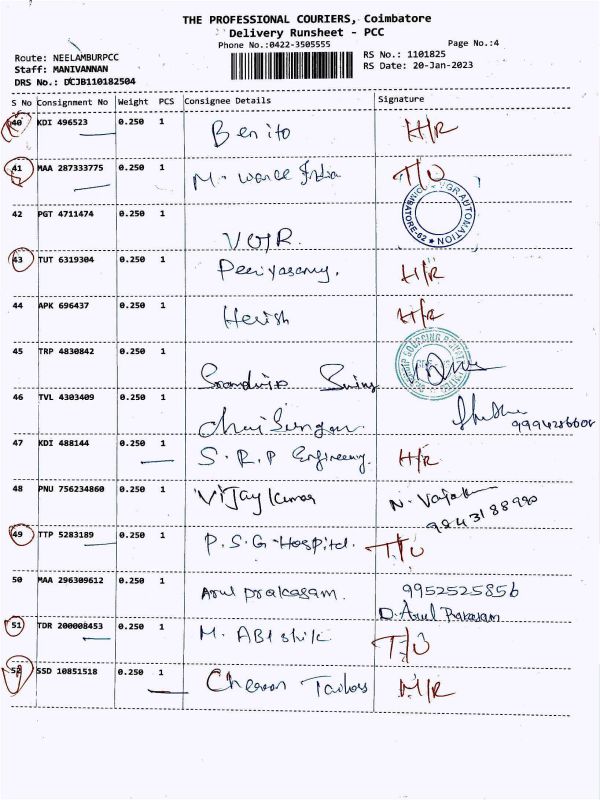 THE PROFESSIONAL COURIERS, Coimbatore
Delivery Runsheet - PCC
Phone No.:0422-3505555
Page No.:4
Route: NEELAMBURPCC
RS No.: 1101825
Staff: MANIVANNAN
RS Date: 20-Jan-2023
DRS No.: DCJB110182504
S No Consignment No Weight PCS Consignee Details Signature
40 KDI 496523 0.250 1 Benito H/R
41 MAA 287333775 0.250 1 M. India T/O
42 PGT 4711474 0.250 1 VGR. AUTOMATION
43 TUT 6319304 0.250 1 Periyasamy. H/R
44 APK 696437 0.250 1 Herish H/R
45 TRP 4830842 0.250 1
46 TVL 4303409 0.250 1
47 KDI 488144 0.250 1 S.R.P Engineering. H/R
48 PNU 756234860 0.250 1 Vijay Kumar
9843188990
49 TTP 5283189 0.250 1 P.S.G-Hospital. T/O
50 MAA 296309612 0.250 1 Arul prakasam. 9952525856
D. Arul Prakasam
51 TDR 200008453 0.250 1 M. T/O
52 SSD 10851518 0.250 1 Tailors H/R